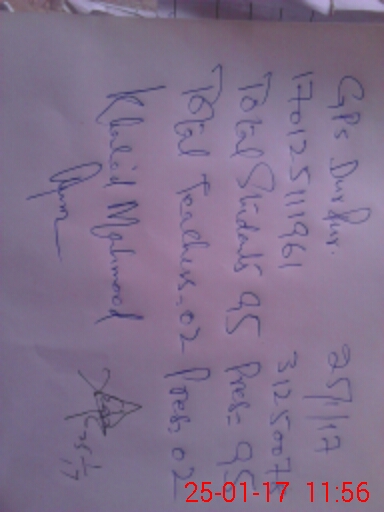 GPS Dur Pur. 25/1/17
170125111961 3125007
Total Students 95 Pres = 95
Total Teachers = 02 Pres = 02
Khalid Mahmood
25-01-17 11:56